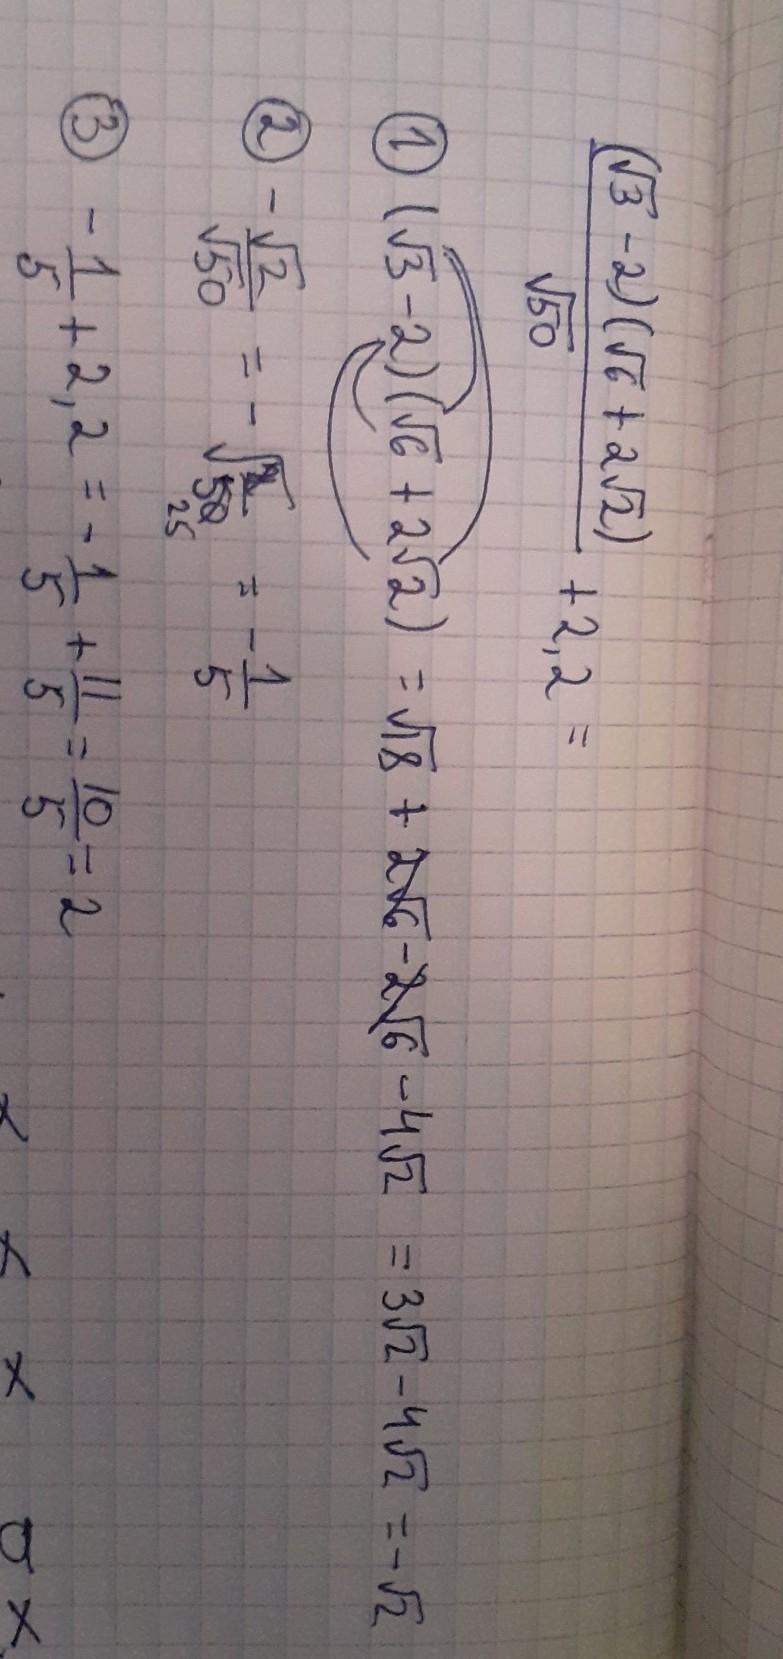 (√3 - 2)(√6 + 2√2)
√50
+ 2,2 =
① (√3 - 2)(√6 + 2√2) = √18 + 2√6 - 2√6 - 4√2 = 3√2 - 4√2 = -√2
② - √2/√50 = - √ 50 25 = - 1/5
③ - 1/5 + 2,2 = - 1/5 + 11/5 = 10/5 = 2